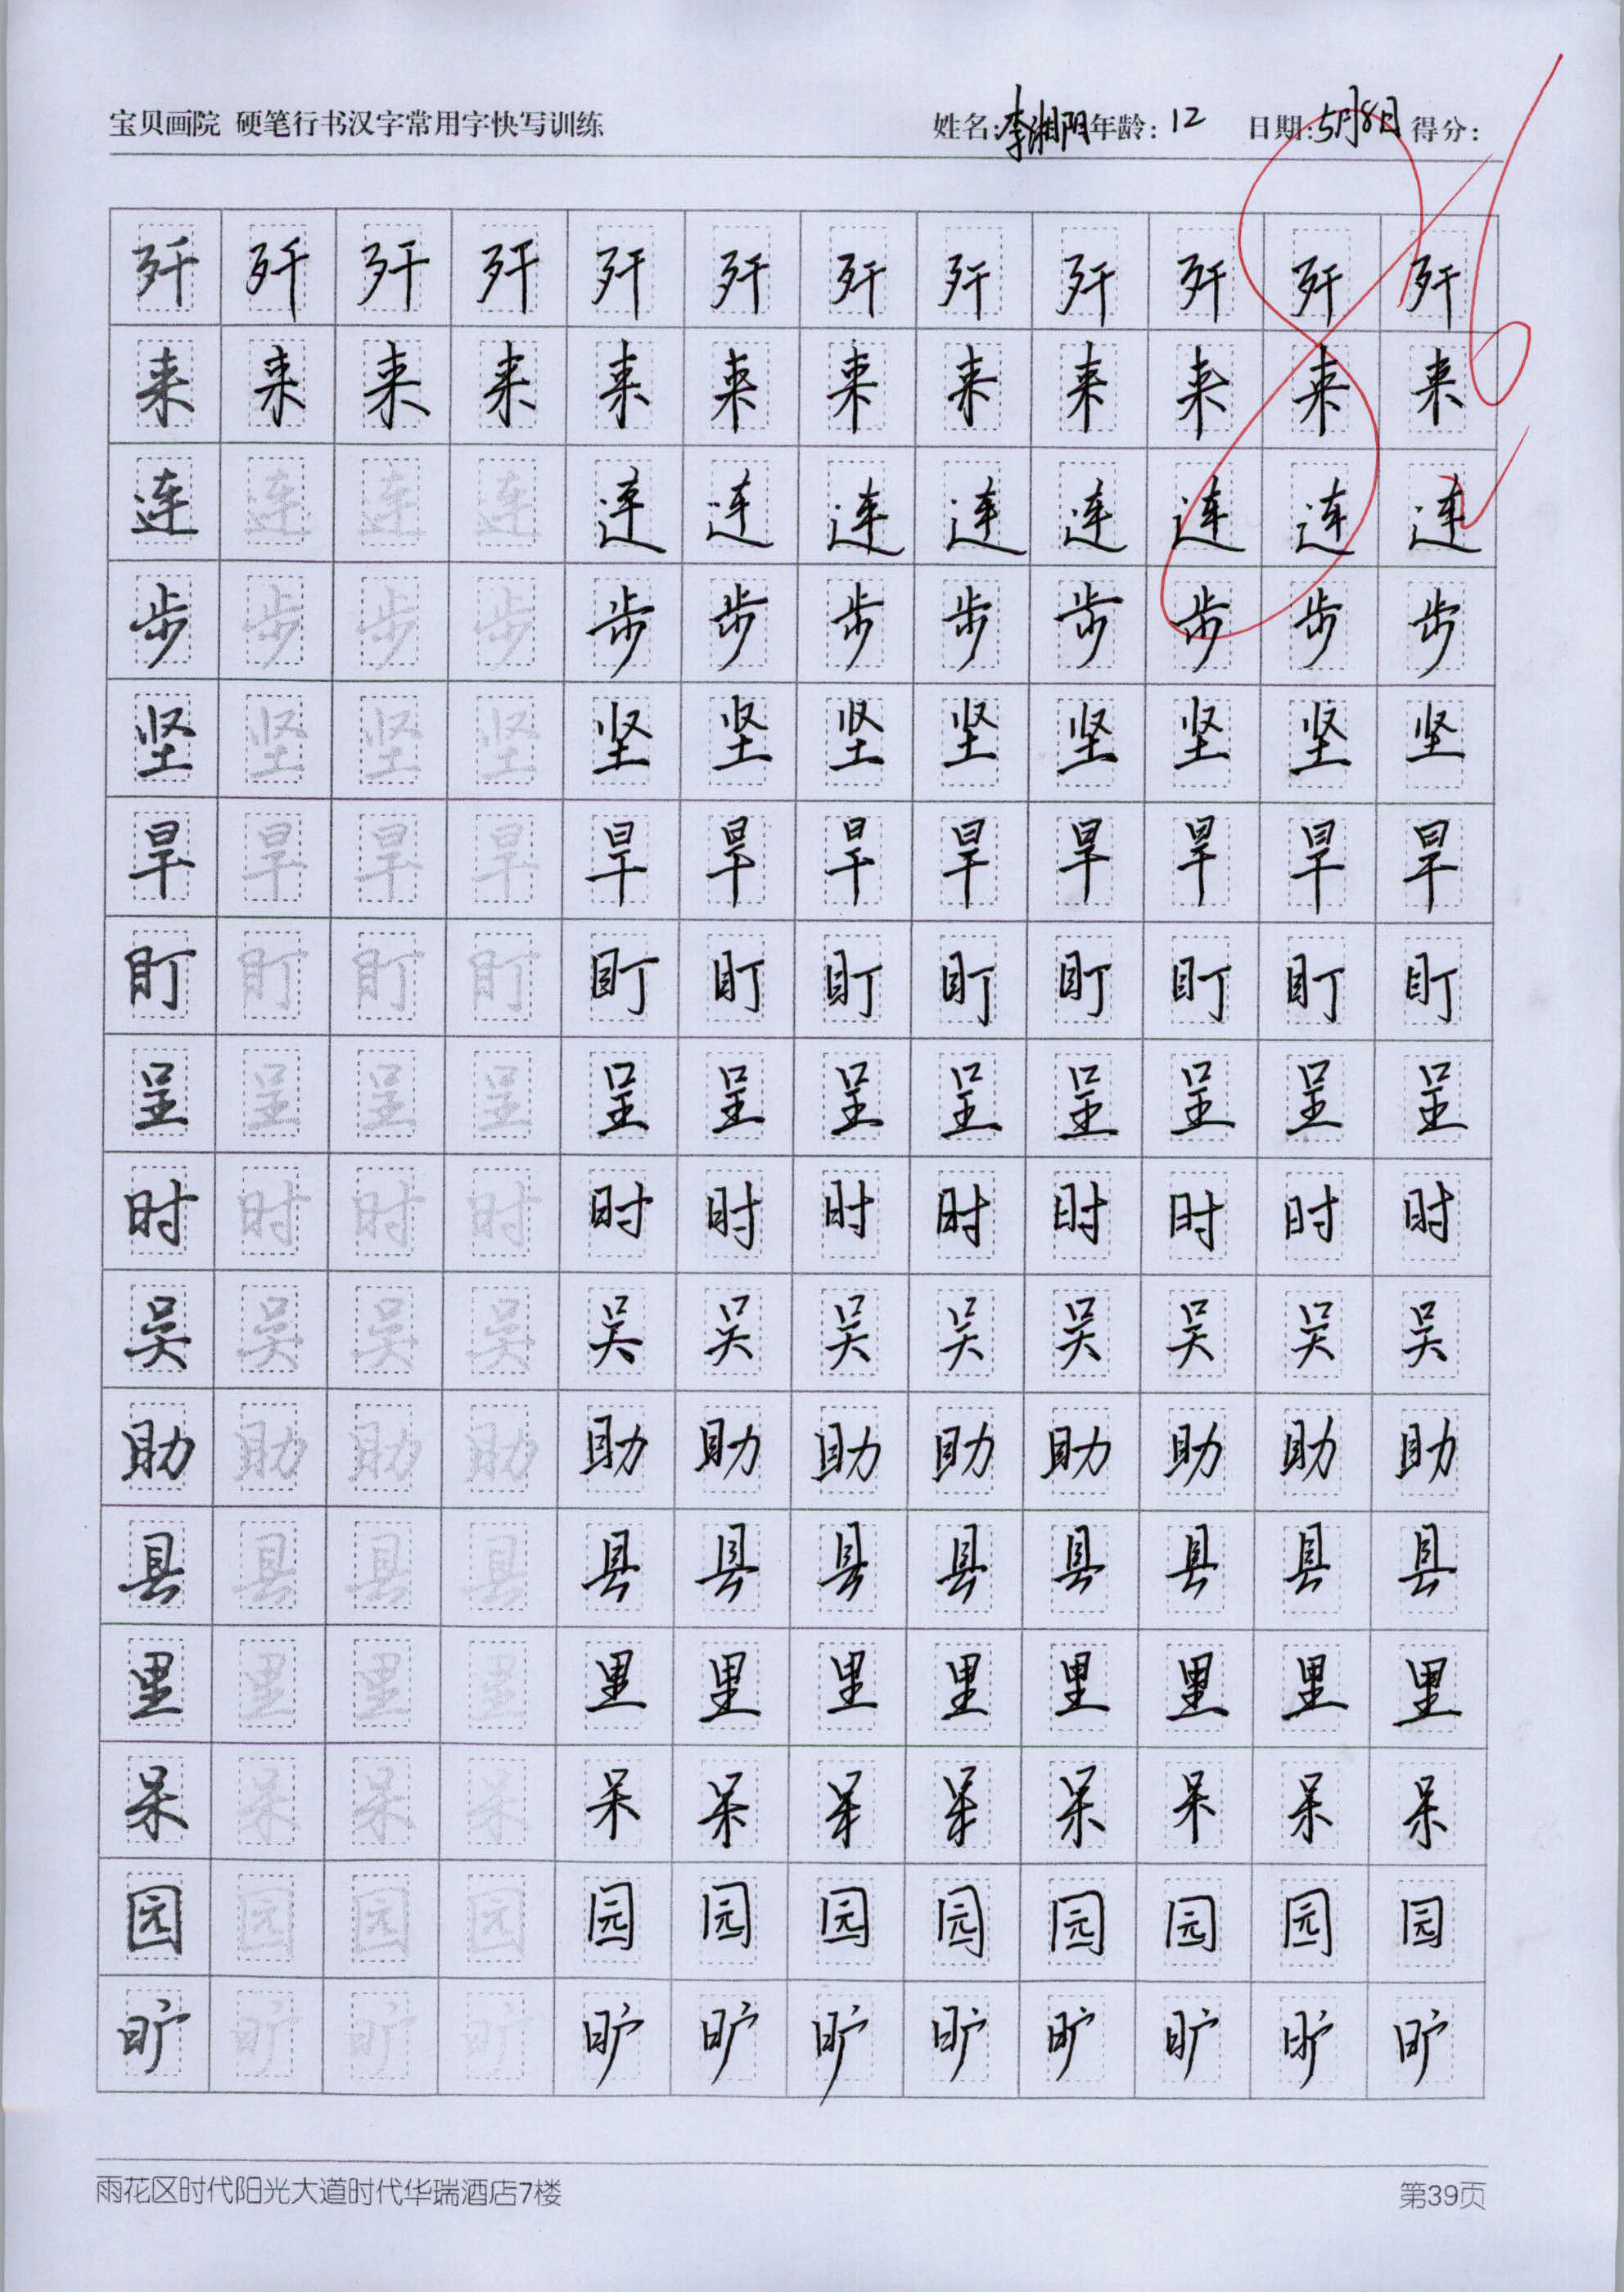 宝贝画院 硬笔行书汉字常用字快写训练 姓名:李湘阳 年龄:12 日期:5月8日 得分:86
歼 歼 歼 歼 歼 歼 歼 歼 歼 歼 歼 歼
来 来 来 来 来 来 来 来 来 来 来 来
连 连 连 连 连 连 连 连 连 连 连 连
步 步 步 步 步 步 步 步 步 步 步 步
坚 坚 坚 坚 坚 坚 坚 坚 坚 坚 坚 坚
旱 旱 旱 旱 旱 旱 旱 旱 旱 旱 旱 旱
盯 盯 盯 盯 盯 盯 盯 盯 盯 盯 盯 盯
呈 呈 呈 呈 呈 呈 呈 呈 呈 呈 呈 呈
时 时 时 时 时 时 时 时 时 时 时 时
吴 吴 吴 吴 吴 吴 吴 吴 吴 吴 吴 吴
助 助 助 助 助 助 助 助 助 助 助 助
县 县 县 县 县 县 县 县 县 县 县 县
里 里 里 里 里 里 里 里 里 里 里 里
呆 呆 呆 呆 呆 呆 呆 呆 呆 呆 呆 呆
园 园 园 园 园 园 园 园 园 园 园 园
旷 旷 旷 旷 旷 旷 旷 旷 旷 旷 旷 旷
雨花区时代阳光大道时代华瑞酒店7楼 第39页